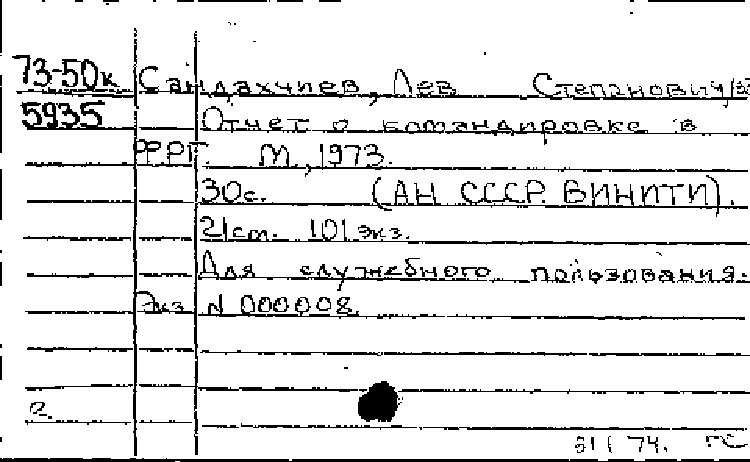 73-50к Сандахчиев, Лев Степанович
5935 Отчет о командировке в
ФРГ. М., 1973.
30с. (АН СССР. ВИНИТИ).
21см. 101 экз.
Для служебного пользования.
Экз. N 000008.
21 74. ГС